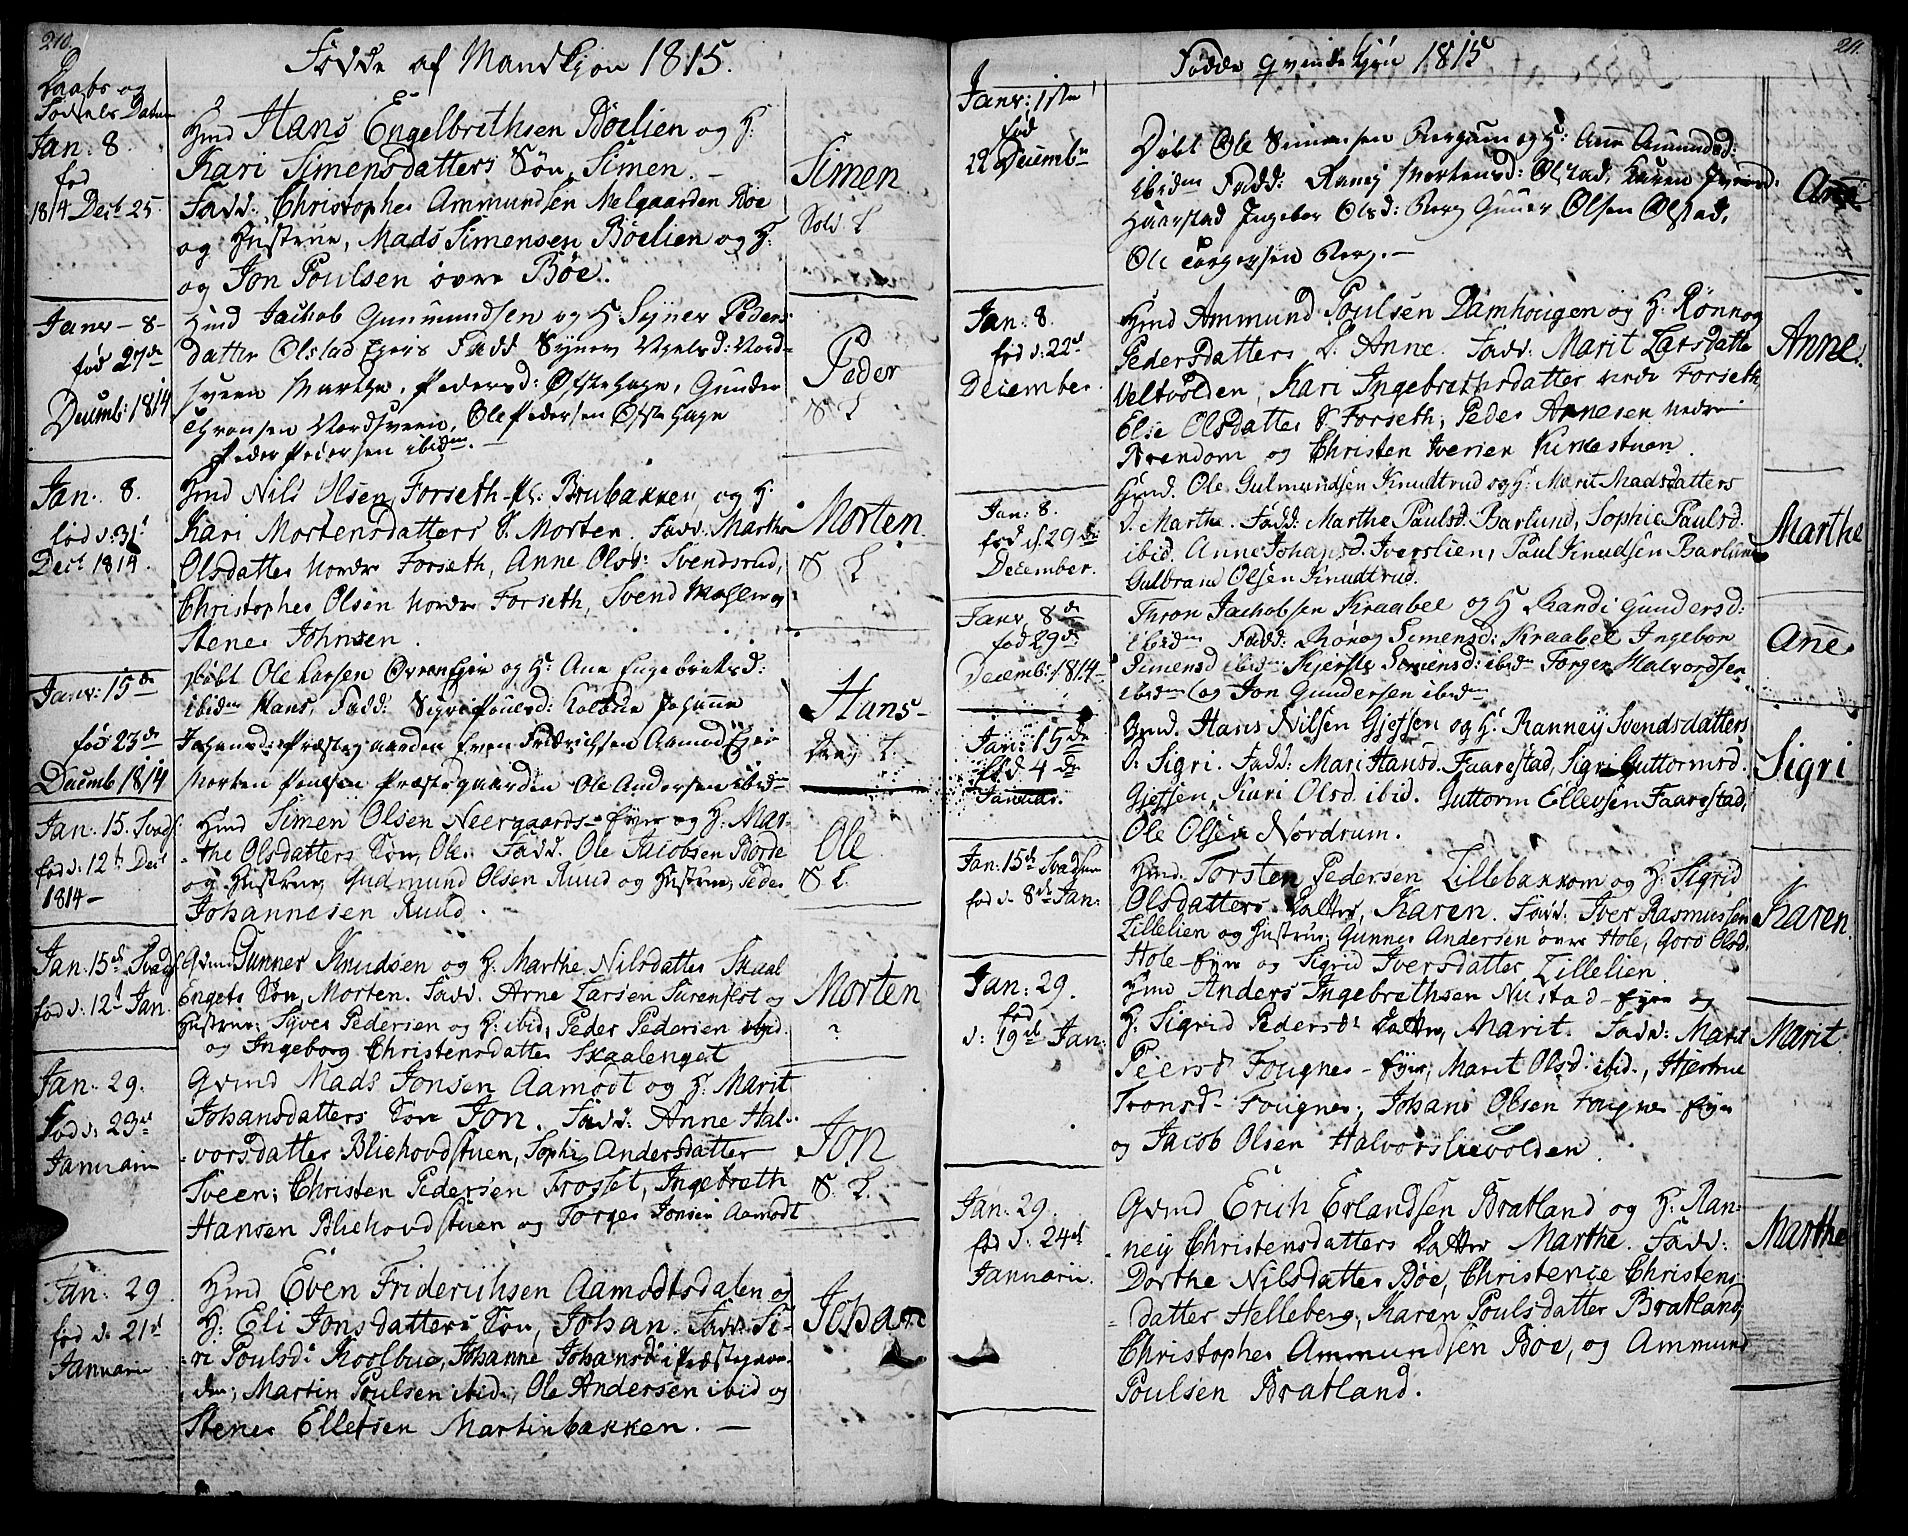 210.
Fødde af Mandkjøn 1815.
Daabs og
Fødsels Datum
Jan: 8.
fød
1814 Dec 25.
Hmd Hans Engelbrethsen Bøelien og H:
Kari Simensdatters Søn, Simen. –
Fadd: Christopher Ammundsen Melgaarden Bøe
og Hustrue, Mads Simensen Bøelien og H:
og Jon Poulsen øvre Bøe.
Simen
Janv – 8 –
fød 27de
Decemb: 1814
Hmd Jachob Gunmundsen og H: Syner Peders
datter Olstad Fadd Synev
sveen Marthe Pedersd: Øfstehage, Gunder
Thronsen Nordsveen, Ole Pedersen Øfstehage
Peder Pedersen ibidm. –
Peder
S L
Jan: 8.
fød d: 31t
Dect 1814.
Hmd Nils Olsen Forseth Pl: Brubakken og H:
Kari Mortensdatters S. Morten. Fadd: Marthe
Olsdatter Nordre Forseth, Anne Olsd: Svendstad,
Christopher Olsen Nordre Forseth, Svend og
Stener Johnsen.
Morten
S L
Janv: 15de
fød 23de
Decemb 1814
Døbt Ole Larsen og H: Ane Engebretsd:
ibidm Hans, Fadd: Johanne
Johansd: Præstegaarden Even Fredrichsen Aamod Ejer
Morten Poulsen Præstegaarden Ole Andersen ibidm
Hans –
Jan. 15. Svads.
fød d: 12t Dect
1814 –
Hmd Simen Olsen Neergaards-Ejer og H: Mar-
the Olsdatters Søn, Ole. Fadd. Ole Jacobsen
og Hustrue, Gudmund Olsen Ruud og Hustrue, Peder
Johannesen Ruud.
Ole
S L.
Jan. 15de Svads.
fød d: 12t Jan.
Gvmd Gunner Knudsen og H. Marthe Nilsdatter Skaal
Engets Søn, Morten. Fadd. Arne Larsen Surenflot og
Hustrue: Syver Pedersen og H: ibid; Peder Pedersen ibid.
og Ingeborg Christensdatter Skaalenget
Morten
Jan: 29.
fød d: 23de
Januarii
Gvmd Mads Jonsen Aamodt og H: Marit
Johansdatters Søn Jon. Fadd: Anne Hal-
vorsdatter Bliehovdstuen, Sophi Andersdatter
Sveen; Christen Pedersen Frosset, Ingebreth
Hansen Bliehovdstuen og Torger Jonsen Aamodt
Jon
S. L.
Jan: 29
fød d. 21d
Januarii
Hmd Even Friderichsen Aamodtsdalen og
H: Eli Jonsdatters Søn, Johan. Fadd: Si-
ri Poulsd: Koolbue, Johanne Johansd: i Præstegaar-
den; Martin Poulsen ibid., Ole Andersen ibid og
Stener Ellefsen Martinbakken. –
Johan
211.
Fødde qvindekjøn 1815
Janv: 1ste
fød
22 Decembr
Døbt Ole Simensen Bergum og H: Ane Amundsd:
ibidm Fadd: Ranej Mortensd: Olstad, Karen
Haarstad Ingebor Olsd: Berg Guner Olsen Olstad,
Ole Torgersen Berg. –
Ane
Jan: 8.
fød d: 22d
December.
Hmd Ammund Poulsen Damhougen og H: Rønnog
Pedersdatters D. Anne. Fadd: Marit Larsdatter
Veltvolden, Kari Ingebrethsdatter nedr Forseth,
Else Olsdatter S. Forseth, Peder Arnesen nedre
Brendom og Christen Iversen Kirkestuen.
Anne.
Jan: 8.
fød d. 29de
December.
Hmd. Ole Gulmundsen Knudtrud og H: Marit Madsdatters
D. Marthe. Fadd: Marthe Paulsd. Barlund, Sophie Paulsd.
ibid. Anne Johansd. Iverslien, Paul Knudsen Barlund
Gulbrand Olsen Knudtrud.
Marthe
Janv. 8de
fød 29de
Decemb: 1814 –
Thron Jachobsen Kraabel og H Randi Gundersd:
ibidm Fadd: Rønog Simensd: Kraabel Ingebor
Simensd ibidm Kjersty Simensd: ibidm Torger Halvordsen
ibidm og Jon Gundersen ibidm
Ane
Jan: 15de
fød 4de
Januar.
Gmd. Hans Nilsen Gjefsen og H: Ranney Svendsdatters
D: Sigri. Fadd: Mari Hansd. Faarestad, Sigri Guttormsd.
Gjefsen, Kari Olsd. ibid. Guttorm Ellevsen Faarestad,
Ole Olsen Nordrum.
Sigri
Jan: 15de Svadsum
fød d. 8de Jan:
Hmd. Torsten Pedersen Lillebakkom og H: Sigrid
Olsdatters Datter, Karen. Fadd: Iver Rasmussen
Lillelien og Hustrue; Gunner Andersen øvre Hole, Goro Olsd.
Hole-Ejer og Sigrid Iversdatter Lillelien.
Karen.
Jan: 29.
fød
d: 19de Jan:
Hmd Anders Ingebrethsen Nustad-Ejer og
H: Sigrid Pedersd: Datter, Marit. Fadd: Marit
Peersd Fougner-Ejer, Marit Olsd: ibid., Hjertrue
Tronsd- Fougner, Johans Olsen Fougner Ejer
og Jacob Olsen Halvorslievolden.
Marit
Jan: 29.
fød d. 24de
Januarii.
Gvmd Erich Erlandsen Bratland og H: Ran-
ney Christensdatters Datter Marthe. Fadd:
Dorthe Nilsdatter Bøe, Christence Christens
datter Helleberg, Karen Poulsdatter Bratland,
Christopher Ammundsen Bøe, og Ammund
Poulsen Bratland.
Marthe